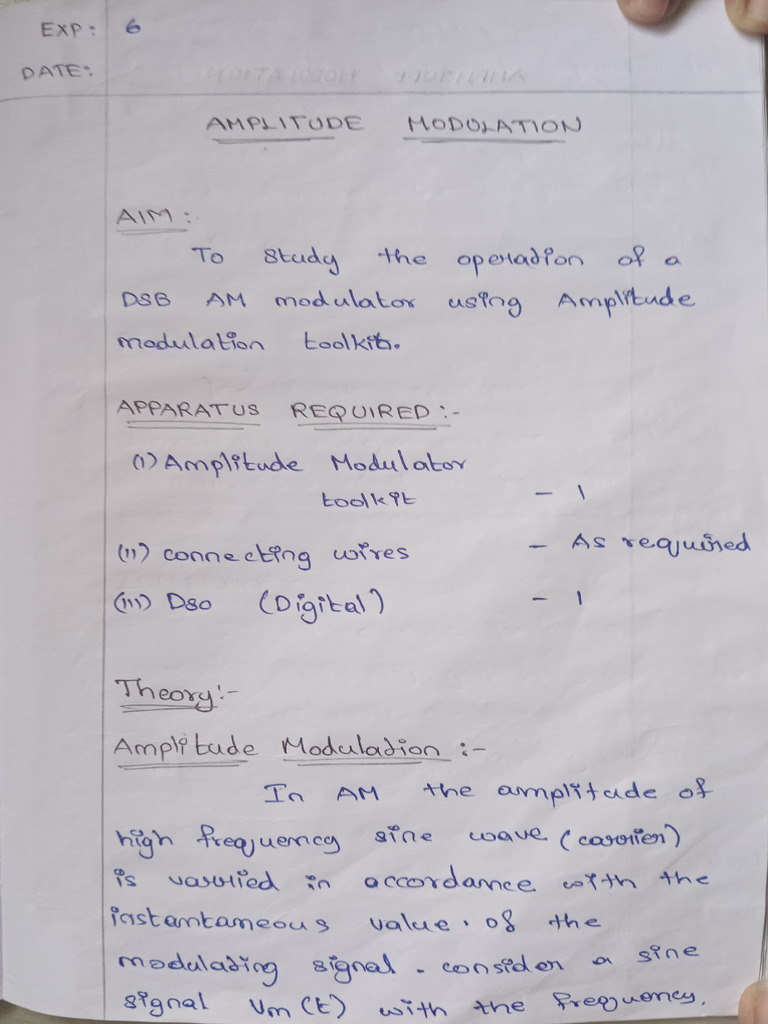 EXP: 6
DATE:
AMPLITUDE MODULATION
AIM:
To study the operation of a
DSB AM modulator using Amplitude
modulation toolkit.
APPARATUS REQUIRED:-
(i) Amplitude Modulator
toolkit - 1
(ii) connecting wires - As required
(iii) DSO (Digital) - 1
Theory:-
Amplitude Modulation :-
In AM the amplitude of
high frequency sine wave (carrier)
is varried in accordance with the
instantaneous value. of the
modulating signal. consider a sine
signal Vm(t) with the frequency.